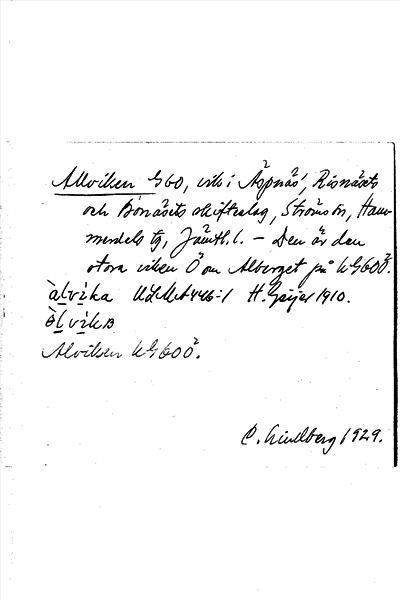 Allviken G60, vik i Äspnäs, Risnäsets
och Bonäsets skifteslag, Ströms sn, Ham-
merdals tg, Jämtl. l. – Den är den
stora viken Ö om Alberget på KG60Ö.
àlvika ULMA 446:1 H. Geijer 1910.
Alviken KG60Ö.
C. Lindberg 1929.